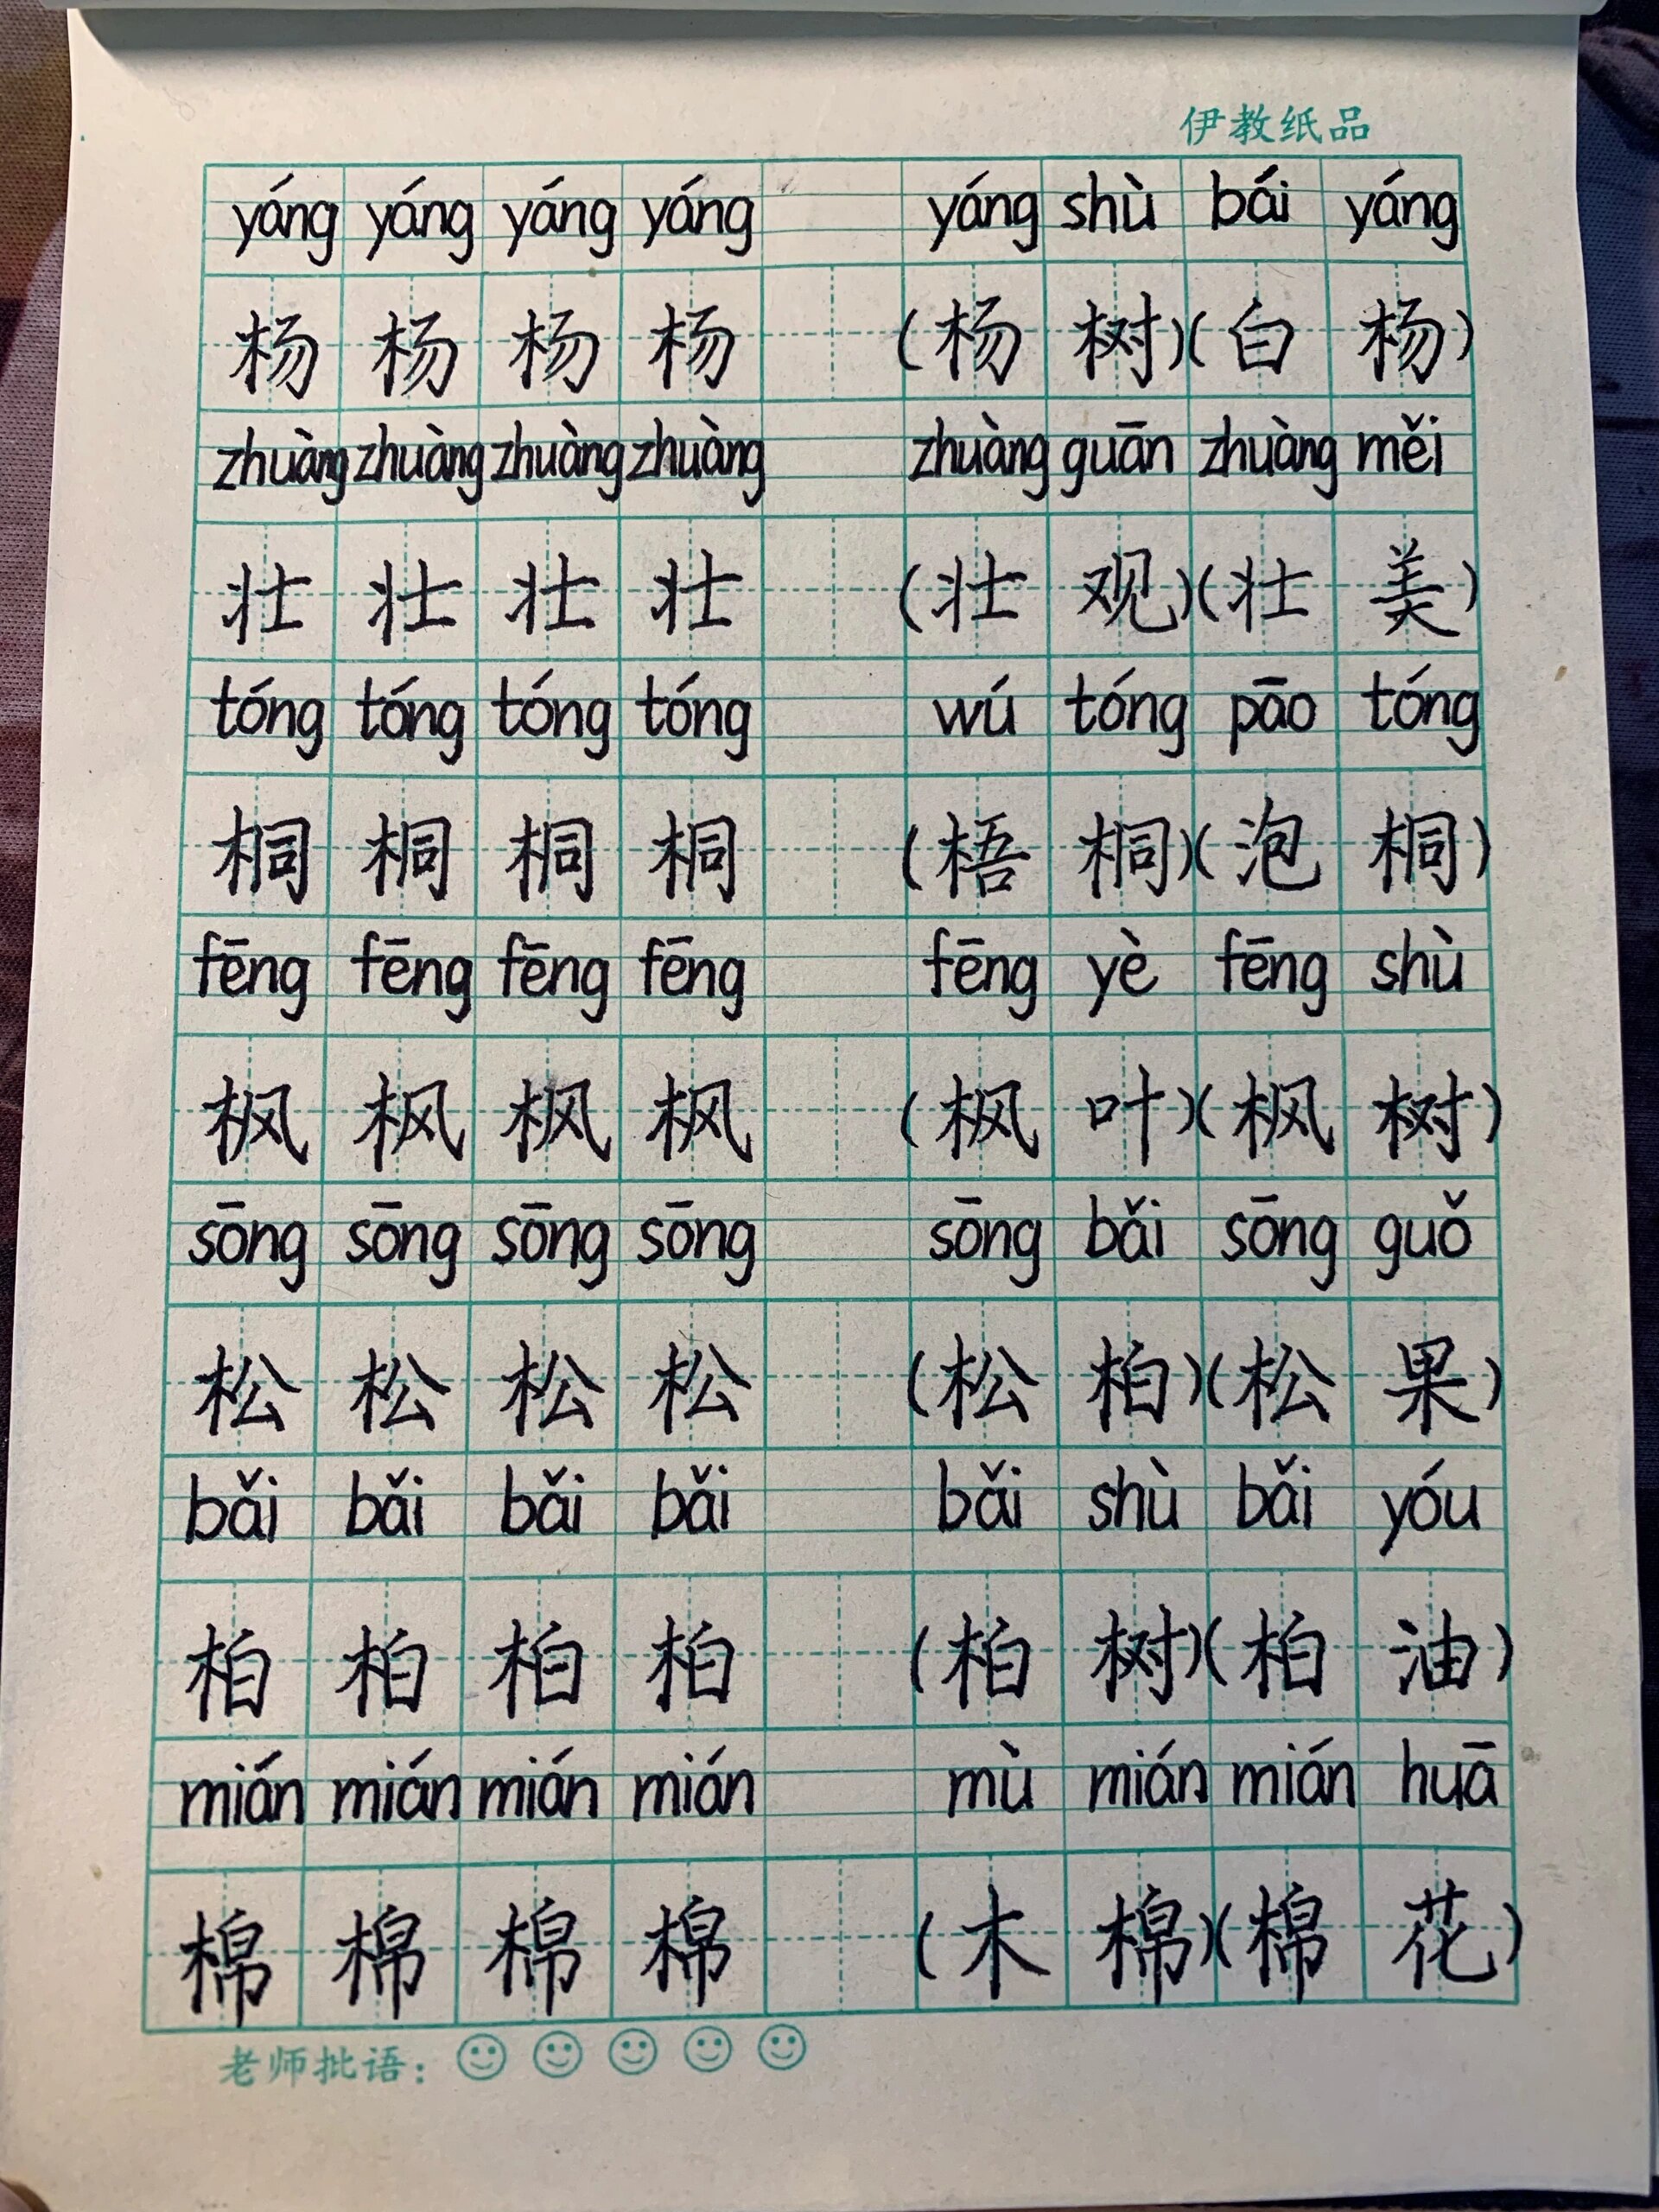 伊教纸品
yáng yáng yáng yáng yáng shù bái yáng
杨 杨 杨 杨 (杨 树)(白 杨)
zhuàng zhuàng zhuàng zhuàng zhuàng guān zhuàng měi
壮 壮 壮 壮 (壮 观)(壮 美)
tóng tóng tóng tóng wú tóng pāo tóng
桐 桐 桐 桐 (梧 桐)(泡 桐)
fēng fēng fēng fēng fēng yè fēng shù
枫 枫 枫 枫 (枫 叶)(枫 树)
sōng sōng sōng sōng sōng bǎi sōng guǒ
松 松 松 松 (松 柏)(松 果)
bǎi bǎi bǎi bǎi bǎi shù bǎi yóu
柏 柏 柏 柏 (柏 树)(柏 油)
mián mián mián mián mù mián mián huā
棉 棉 棉 棉 (木 棉)(棉 花)
老师批语: